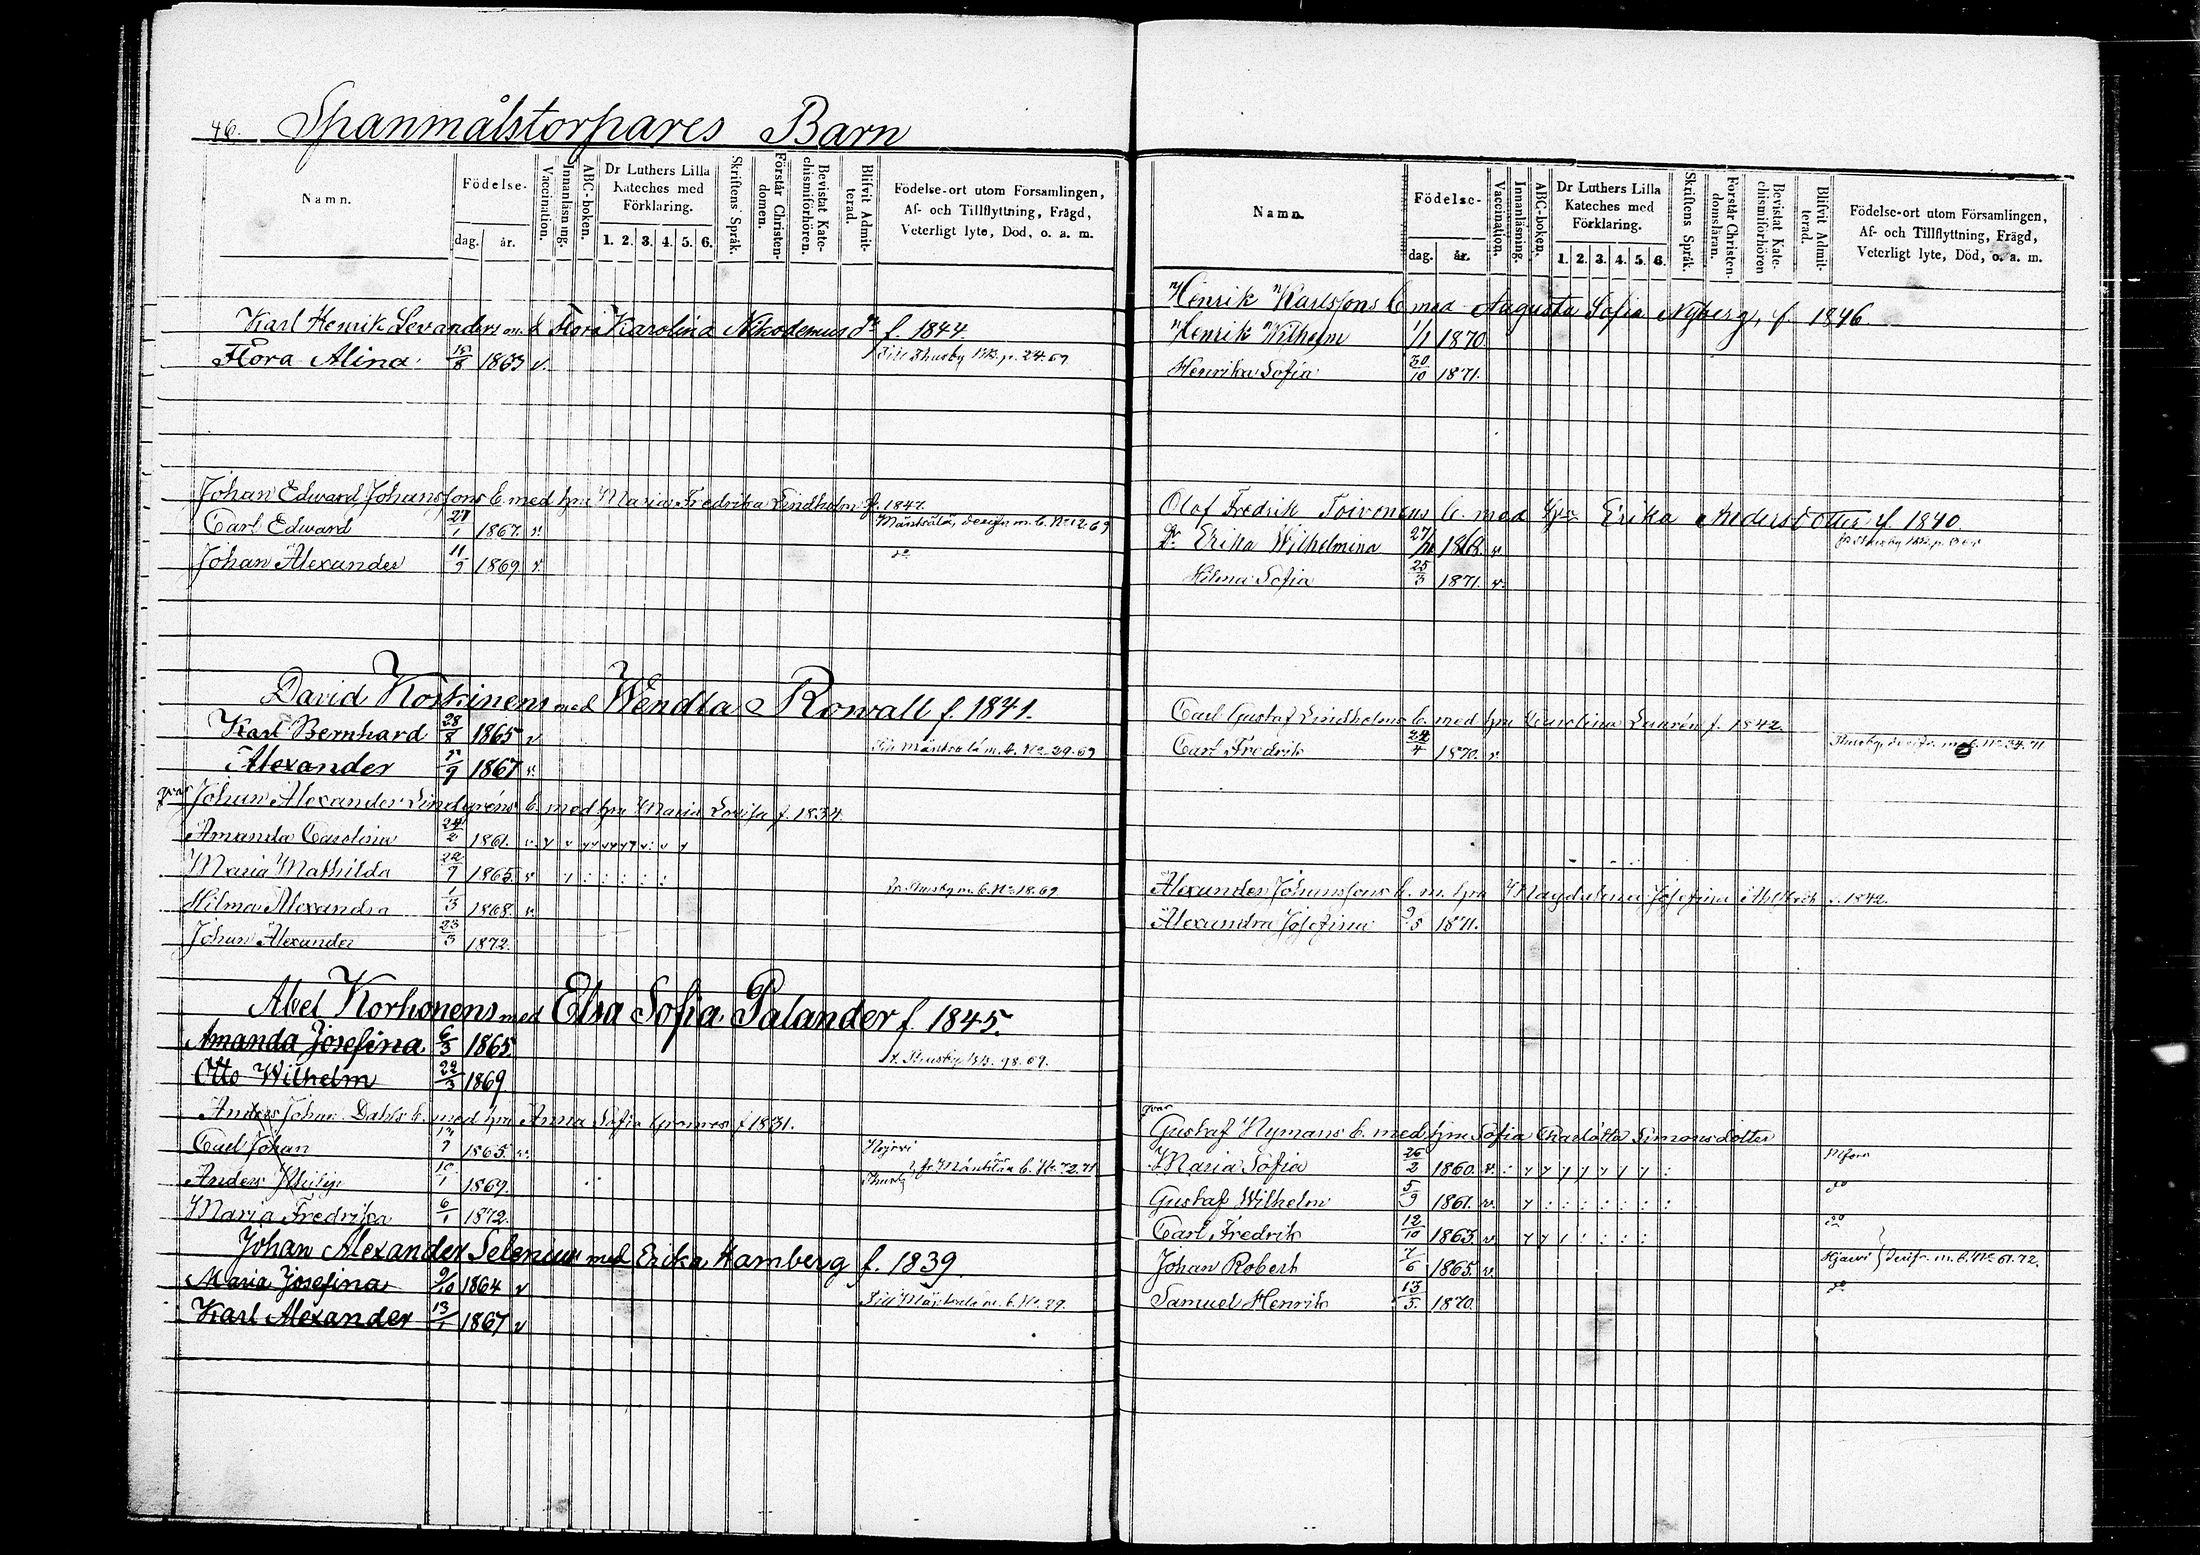 46. Spanmålstorpares Barn
Namn.
Födelse-
dag. år.
Vaccination.
Innanläsning.
ABC-boken.
Dr Luthers Lilla
Kateches med
Förklaring.
1. 2. 3. 4. 5. 6.
Skriftens Språk.
Förstår Christen-
domen.
Bevistat Kate-
chismiförhören.
Blifvit Admit-
terad.
Födelse-ort utom Församlingen,
Af- och Tillflyttning, Frägd,
Veterligt lyte, Död, o. a. m.
Karl Henrik Levanders m. Flora Karolina Nikodemus dr f. 1844.
Flora Alina 15/8 1863 v. Till Thusby KB. p. 24. 69
Johan Edward Johanssons b. med hu Maria Fredrika Lindholm f. 1847.
Carl Edward 1867. v. Mäntsälä, derifr. m. b. No 12. 69
Johan Alexander 11/9 1869 v. do
David Koskinens med Wendla Rowall f. 1841.
Karl Bernhard 28/8 1865 v
Till Mäntsälä m. b. No 29. 69
Alexander 5/9 1867 v.
qvar Johan Alexander Lindgréns b. med hu Maria Lovisa f. 1834.
Amanda Carolina 24/2 1861. v.
Maria Mathilda 22/7 1865. v.
fr. Thusby m. b. No 18. 69
Hilma Alexandra 1/3 1868. v.
Johan Alexander 23/3 1872.
Abel Korhonens med Elsa Sofia Palander f. 1845.
Amanda Josefina 6/3 1865
t. Thusby KB. 98. 69.
Otto Wilhelm 22/3 1869
Anders Johan Dahls b. med hu Anna Sofia f 1831.
Carl Johan 1865. v. Hyjrvi
Anders Philip 10/1 1869. Thusby fr. Mäntsälä b. No 72. 71
Maria Fredrika 6/1 1872.
Johan Alexander Selenius med Erika Hamberg f. 1839.
Maria Josefina 9/10 1864 v
Till Mäntsälä m. b. No 79.
Karl Alexander 13/1 1867 v
Namn.
Födelse-
dag. år.
Vaccination.
Innanläsning.
ABC-boken.
Dr Luthers Lilla
Kateches med
Förklaring.
1. 2. 3. 4. 5. 6.
Skriftens Språk.
Förstår Christen-
domsläran.
Bevistat Kate-
chismiförhören
Blifvit Admit-
terad.
Födelse-ort utom Församlingen,
Af- och Tillflyttning, Frägd,
Veterligt lyte, Död, o. a. m.
Henrik Karlssons b med Augusta Sofia Nyberg, f. 1846.
Henrik Wilhelm 1/1 1870
Henrika Sofia 30/10 1871.
Olof Fredrik Toivonens b. med hu Erika Andersdotter f. 1840.
Dr Erika Wilhelmina 27/11 1868. v.
Hilma Sofia 25/3 1871. v.
Carl Gustaf Lindholms b. med hu Karolina Laurén f. 1842.
Carl Fredrik 22/4 1870. v. Thusby, derifr. m. b. No 34. 71
Alexander Johanssons b. m. hu Magdalena Josefina f. 1842.
Alexandra Josefina 9/5 1871.
qvar
Gustaf Nymans b. med hu Sofia Charlotta Simonsdotter
Maria Sofia 26/2 1860. v.
Gustaf Wilhelm 5/9 1861. v. do
Carl Fredrik 12/10 1863. v. do
Johan Robert 7/6 1865. v. Hjärvi derifr. m. b. No 61. 72.
Samuel Henrik 13/5 1870. do